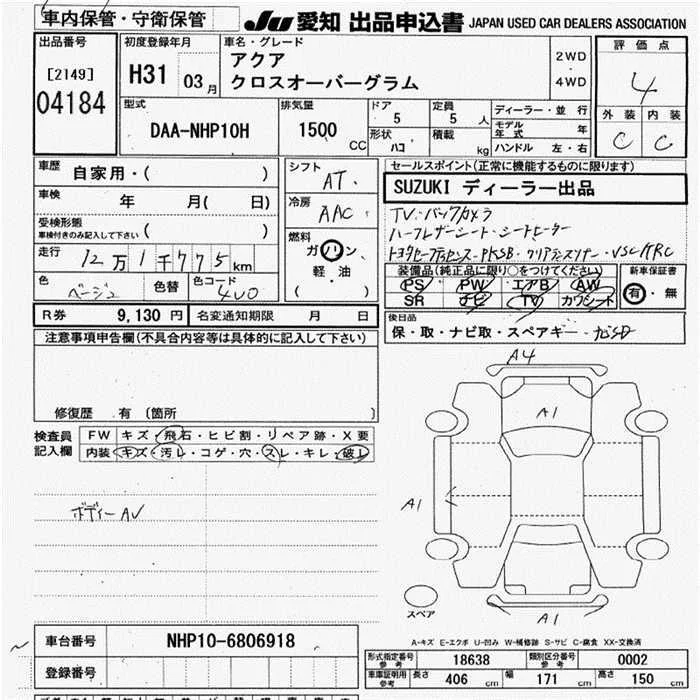 車内保管・守衛保管
JU 愛知 出品申込書 JAPAN USED CAR DEALERS ASSOCIATION
出品番号
[2149]
04184
初度登録年月
H31 03月
車名・グレード
アクア
クロスオーバーグラム
2WD
・
4WD
評価点
4
外装 内装
C C
型式
DAA-NHP10H
排気量
1500 CC
ドア
5
定員
5 人
形状
ハコ
積載
kg
ディーラー・並行
モデル年式 年
ハンドル 左・右
車歴
自家用・( )
車検
年 月( 日)
受検形態
車検付きのみ記入して下さい ( )
走行
12万1千775km
色
ベージュ
色替
色コード
4V0
シフト
AT.
冷房
AAC
燃料
ガソリン
軽・油
( )
セールスポイント(正常に機能するものに限ります)
SUZUKI ディーラー出品
TV・バックカメラ
ハーフレザーシート・シートヒーター
VSC/TRC
装備品(純正品に限り○をつけてください)
PS PW エアB AW
SR ナビ TV カワシート
新車保証書
有・無
R券 9,130円 名変通知期限 月 日
後日品
保・取・ナビ取・スペアキー・
注意事項申告欄(不具合内容等は具体的に記入して下さい)
修復歴 有 〔箇所 〕
検査員記入欄
FW キズ・飛石・ヒビ割・リペア跡・X要
内装 キズ・汚レ・コゲ・穴・スレ・キレ・破レ
ボディーAV
A4
A1
A1
A1
スペア
A-キズ E-エクボ U-凹み W-補修跡 S-サビ C-腐食 XX-交換済
車台番号 NHP10-6806918
登録番号
形式指定番号 参考 18638 類別区分番号 参考 0002
車庫証明用 参考 長さ 406 cm 幅 171 cm 高さ 150 cm